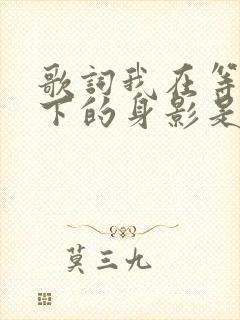 歌詞我在等
下的身影是
莫三九